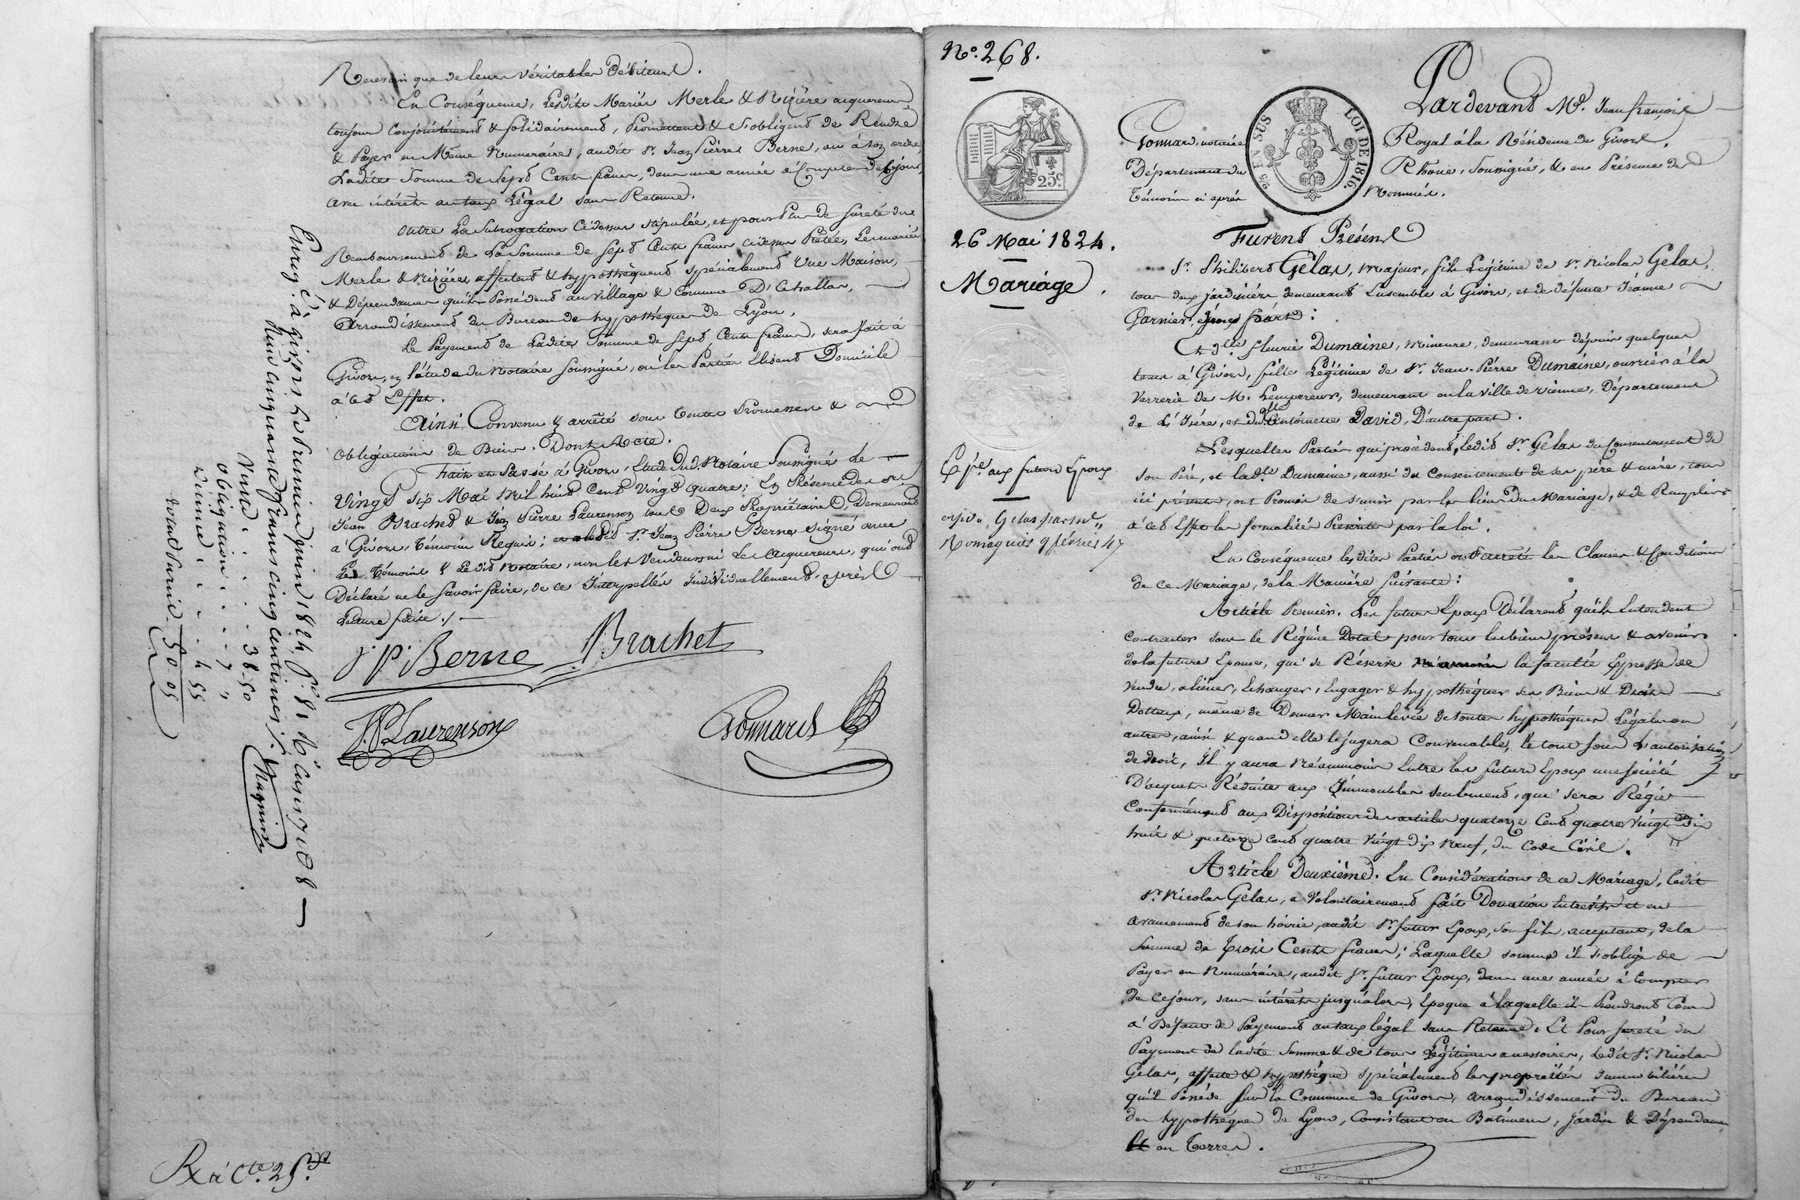 que de leurs véritables Débiteurs.
En Conséquence, Lesdits Mariés Merle & Rivière acquereurs
toujours conjointement & solidairement, Promettent & s'obligent de Rendre
& Payer en Même Numéraire, audit Sr. Jean Pierre Berne, ou à son ordre
Ladite Somme de Sept Cents francs, dans une année à Compter de ce jour,
avec intérêts au taux Légal sans Retenue.
Outre La Subrogation Cidessus stipulée, et pour Plus de sureté du
Remboursement de La Somme de Sept Cents francs cidessus Prêtée, Les mariés
Merle & Rivière, affectent & hypothèquent spécialement Une Maison,
& Dépendances qu'ils Possèdent au village & Commune D'Echallas,
Arrondissement du Bureau des hypothèques de Lyon.
Le Payement de Ladite Somme de Sept Cents francs, sera fait à
Givors, en l'étude du Notaire soussigné, où les Parties Elisent Domicile
à cet Effet.
Ainsi Convenu & arrêté sous Toutes Promesses &
Obligations de Biens. Dont Acte.
Fait et Passé à Givors, Etude dud. Notaire Soussigné Le
Vingt six Mai Mil huit Cent Vingt quatre; En Présence des srs
Jean Brachet & Jean Pierre Laurenson tous Deux Propriétaires, Demeurant
à Givors, Témoins Requis; Ledit Sr. Jean Pierre Berne a signé avec
Les Témoins & Ledit Notaire, non les Vendeurs ni les acquereurs, qui ont
Déclaré ne le savoir faire, de ce Interpellés Individuellement, après
Lecture faite ./.
J. P. Berne
Brachet
J. P. Laurenson
Fonnard
Enreg. à Givors Le Premier juin 1824, f° 81
Reçu cinquante francs cinq centimes
Vente . . . 38-50
obligation . . . 7 "
Dixième . . . 4 55
50 05
Rx à Cte. 25.
No. 268.
Pardevant Me. Jean françois
Fonnard, notaire Royal à la Résidence de Givors,
Département du Rhône, soussigné, & en Présence des
Témoins ci après Nommés.
25 EN SUS LOI DE 1816.
25c
26 Mai 1824.
Mariage.
Furent Présents
Sr. Philibert Gelas, majeur, fils Légitime de Sr. Nicolas Gelas,
tous deux jardiniers demeurants Ensemble à Givors, et de défunte Jeanne
Garnier, d'une part;
Et dlle. fleurie Dumaine, mineure, demeurant depuis quelque
tems à Givors, fille Légitime de Sr. Jean Pierre Dumaine, ouvrier à la
Verrerie de M. Lempereur, demeurant en la ville de vienne, Département
de l'Isère, et de dlle Antoinette David, D'autre part.
Lesquelles Parties qui procèdent, ledit Sr. Gelas du Consentement de
son Père, et la dlle Dumaine, aussi du Consentement de ses père & mère, tous
ici présents, ont Promis de s'unir par les liens du Mariage, & de Remplir
à cet Effet les formalités Prescrites par la loi.
Ex.re aux futurs Epoux
Romagnès 9 février 47
En Conséquence lesdites Parties ont arrêté les Clauses & Conditions
de ce Mariage, de la Manière suivante:
Article Premier. Les futurs Epoux Déclarent qu'ils Entendent
contracter sous le Régime Dotal pour tous les biens présents & avenirs
de la future Epouse, qui se Réserve la faculté Expresse de
Vendre, aliéner, Echanger, Engager & hypothéquer ses Biens & Droits
Dotaux, même de Donner Mainlevée de toutes hypothèques Légales ou
autres, ainsi & quand elle le jugera Convenable, le tout sous L'autorisation
de droit, Il y aura Néanmoins Entre les futurs Epoux une société
D'acquets Réduite aux Immeubles seulement, qui sera Régie
Conformément aux Dispositions des articles quatorze Cent quatre Vingt Dix
huit & quatorze cent quatre Vingt Dix Neuf, du Code Civil.
Article Deuxième. En Considération de ce Mariage, ledit
Sr. Nicolas Gelas, a Volontairement fait Donation Entrevifs et en
avancement de son hoirie, audit Sr. futur Epoux, son fils, acceptant, de la
Somme de Trois Cents francs; Laquelle somme il s'oblige de
Payer en Numéraire, audit Sr. futur Epoux, dans une année à Compter
de ce jour, sans intérêts jusqu'alors, Epoque à laquelle ils Prendront Cours
à Défaut de Payement au taux légal sans Retenue. Et Pour sureté du
Payement de ladite Somme & de tous Légitimes accessoires, Ledit Sr. Nicolas
Gelas, affecte & hypothèque spécialement les propriétés immobilières
qu'il Possède sur la Commune de Givors, arrondissement du Bureau
des hypothèques de Lyon, Consistant en Bâtiments, Jardin & Dépendances
en Terres.